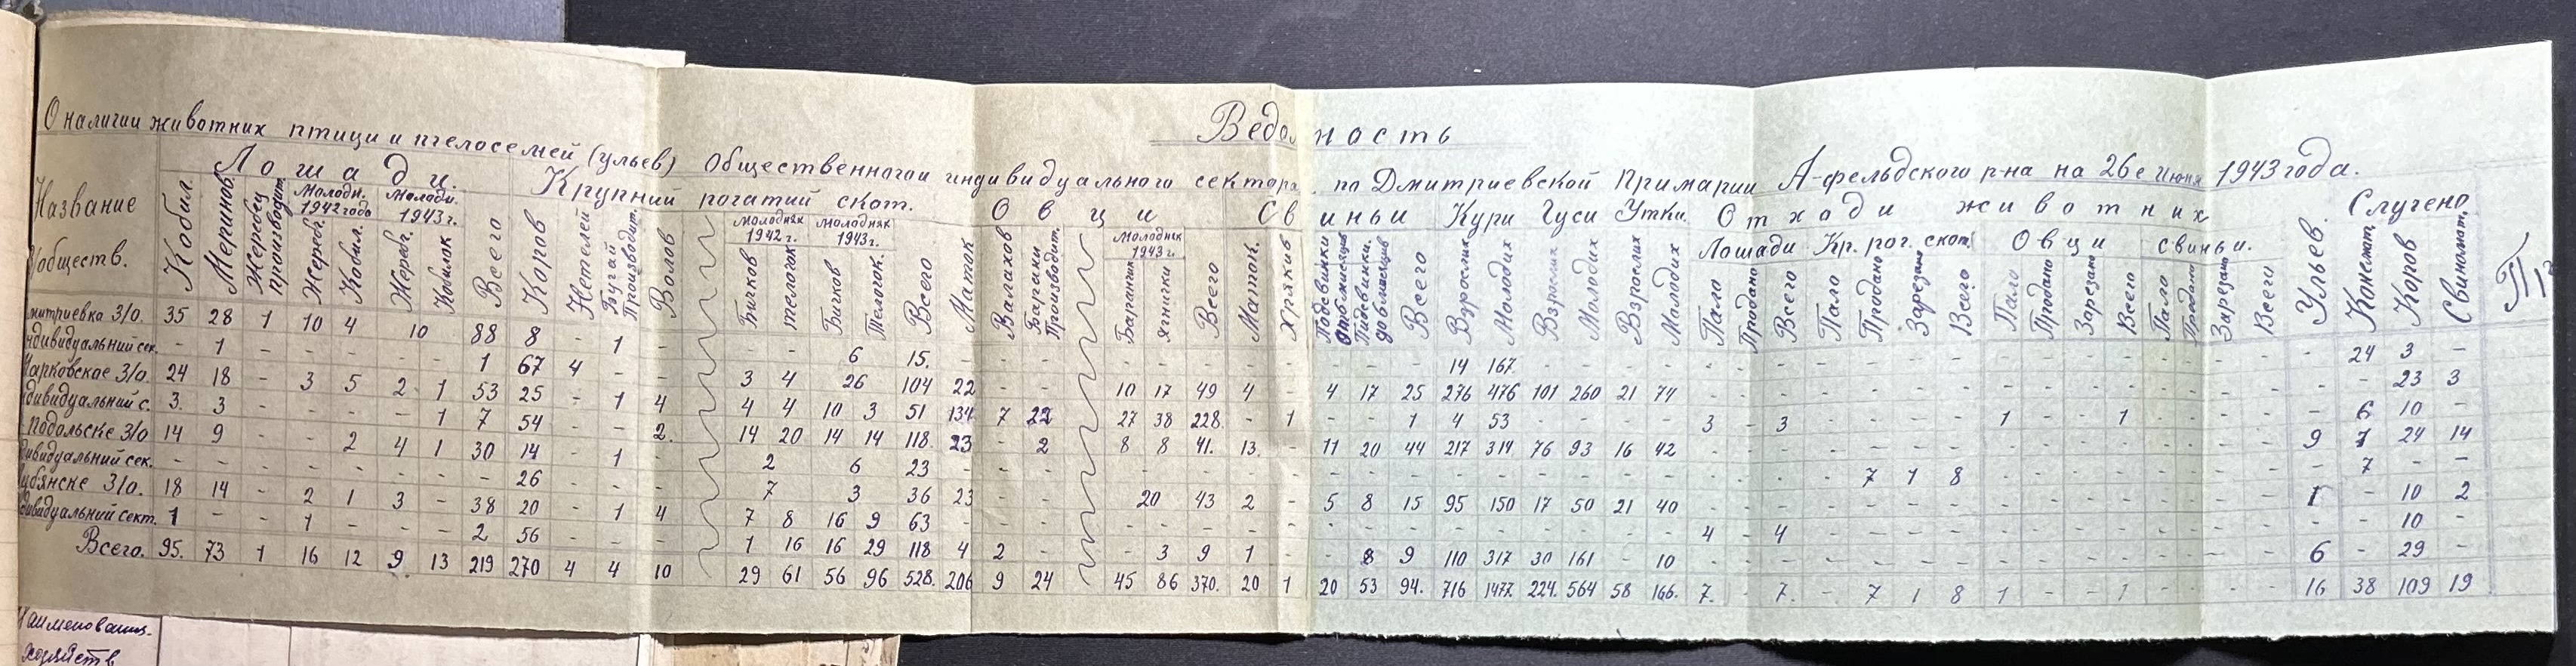 Ведомность
О наличии животних птици и пчелосемей (ульев) Общественного и индивидуального сектора по Дмитриевской Примарии А-фельдского р-на на 26е июня 1943 года.
Название обществ.
Лошади.
Кобил. Меринов. Жеребец производит. Молодн. 1942 года Жереб. Кобил. Молодн. 1943 г. Жереб. Кобилок Всего
Крупний рогатий скот.
Коров Нетелей Бугай Производит. Волов Молодняк 1942 г. Бичков телогок Молодняк 1943 г. Бичков Телогок. Всего
Овци
Маток Валахов Баранки Производит. Молодняк 1943 г. Баранчик Ягнички Всего
Свиньи
Маток. Хряков Подсвинки От 8 месяцев Подсвинки до 8 месяцев Всего
Кури Гуси Утки.
Взрослих Молодих Взрослих Молодих Взрослих Молодих
Отходи животних
Лошади Пало Продано Всего
Кр. рог. скот Пало Продано Зарезано Всего
Овци Пало Продано Зарезано Всего
свиньи. Пало Продано Зарезано Всего
Ульев.
Случено
Конемат. Коров Свиномат.
митриевка З/о. 35 28 1 10 4 10 88 8 - 1 - - 6 15. - - - - - - - - - - - 14 167. - - - - - - - - - - - - - - - - - - 24 3 -
ндивидуальний сек. - 1 - - - - - 1 67 4 - - 3 4 26 104 22 - - 10 17 49 4 - 4 17 25 276 476 101 260 21 74 - - - - - - - - - - - - - - - - - 23 3
Марковское З/о. 24 18 - 3 5 2 1 53 25 - 1 4 4 4 10 3 51 134 7 22 27 38 228. - 1 - - 1 4 53 - - - - 3 - 3 - - - - 1 - - 1 - - - - - 6 10 -
ндивидуальний с. 3. 3 - - - - 1 7 54 - - 2. 14 20 14 14 118. 23 - 2 8 8 41. 13. - 11 20 44 217 314 76 93 16 42 - - - - - - - - - - - - - - - 9 1 24 14
-Подольске З/о 14 9 - - 2 4 1 30 14 - 1 - 2 6 23 - - - - - - - - - - - - - - - - - - - - - - 7 1 8 - - - - - - - - - 7 - -
дивидуальний сек. - - - - - - - - 26 - - - 7 3 36 23 - - 20 43 2 - 5 8 15 95 150 17 50 21 40 - - - - - - - - - - - - - - - 1 - 10 2
убянске З/о. 18 14 - 2 1 3 - 38 20 - 1 4 7 8 16 9 63 - - - - - - - - - - - - - - - - - 4 - 4 - - - - - - - - - - - - - - 10 -
дивидуальний сект. 1 - - 1 - - - 2 56 - - - 1 16 16 29 118 4 2 - - 3 9 1 - - 8 9 110 317 30 161 - 10 - - - - - - - - - - - - - - - 6 - 29 -
Всего. 95. 73 1 16 12 9 13 219 270 4 4 10 29 61 56 96 528. 206 9 24 45 86 370. 20 1 20 53 94. 716 1477. 224. 564 58 166. 7. - 7. - 7 1 8 1 - - 1 - - - - 16 38 109 19
Наименования.
хозяйств